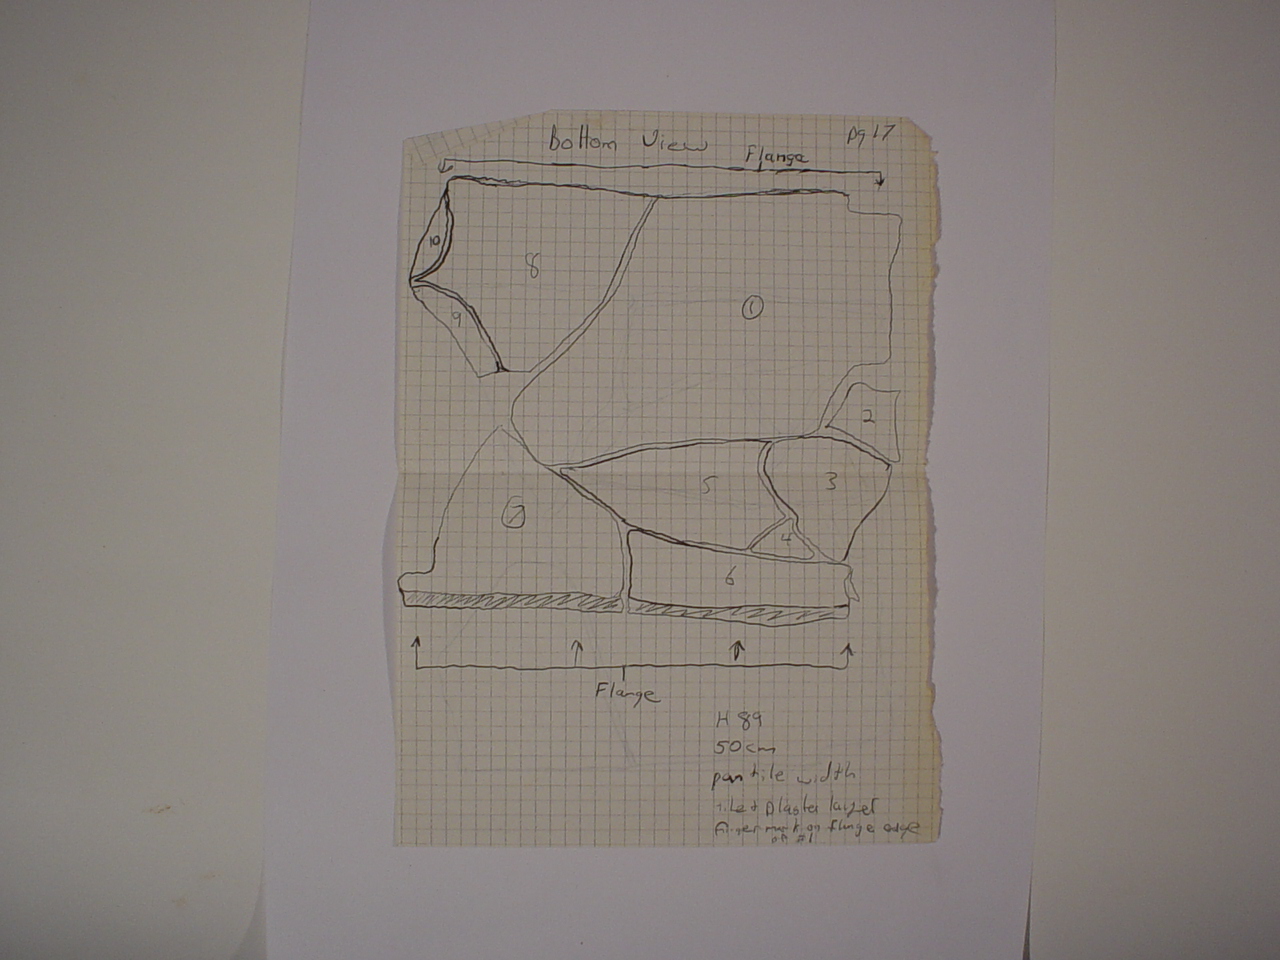 bottom View
pg 17
Flange
10
8
9
①
2
5
3
4
6
Flange
H 89
50cm
pan tile width
tile + Plaster layer
finger mark on flange edge
of #1